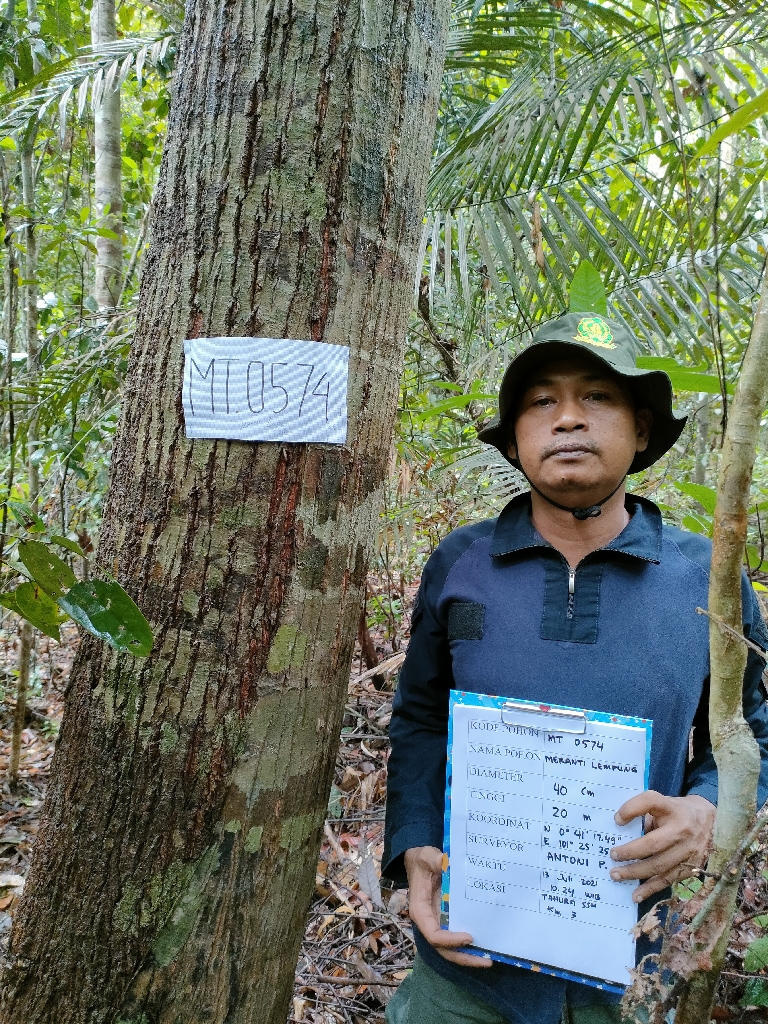 MT 0574
KODE POHON MT 0574
NAMA POHON MERANTI LEMPUNG
DIAMETER 40 Cm
TINGGI 20 m
KOORDINAT N 0° 41' 17.49"
E 101° 25' 25
SURVEYOR ANTONI P.
WAKTU 13 Juli 2021
10.24 WIB
LOKASI TAHURA SSH
Km 3